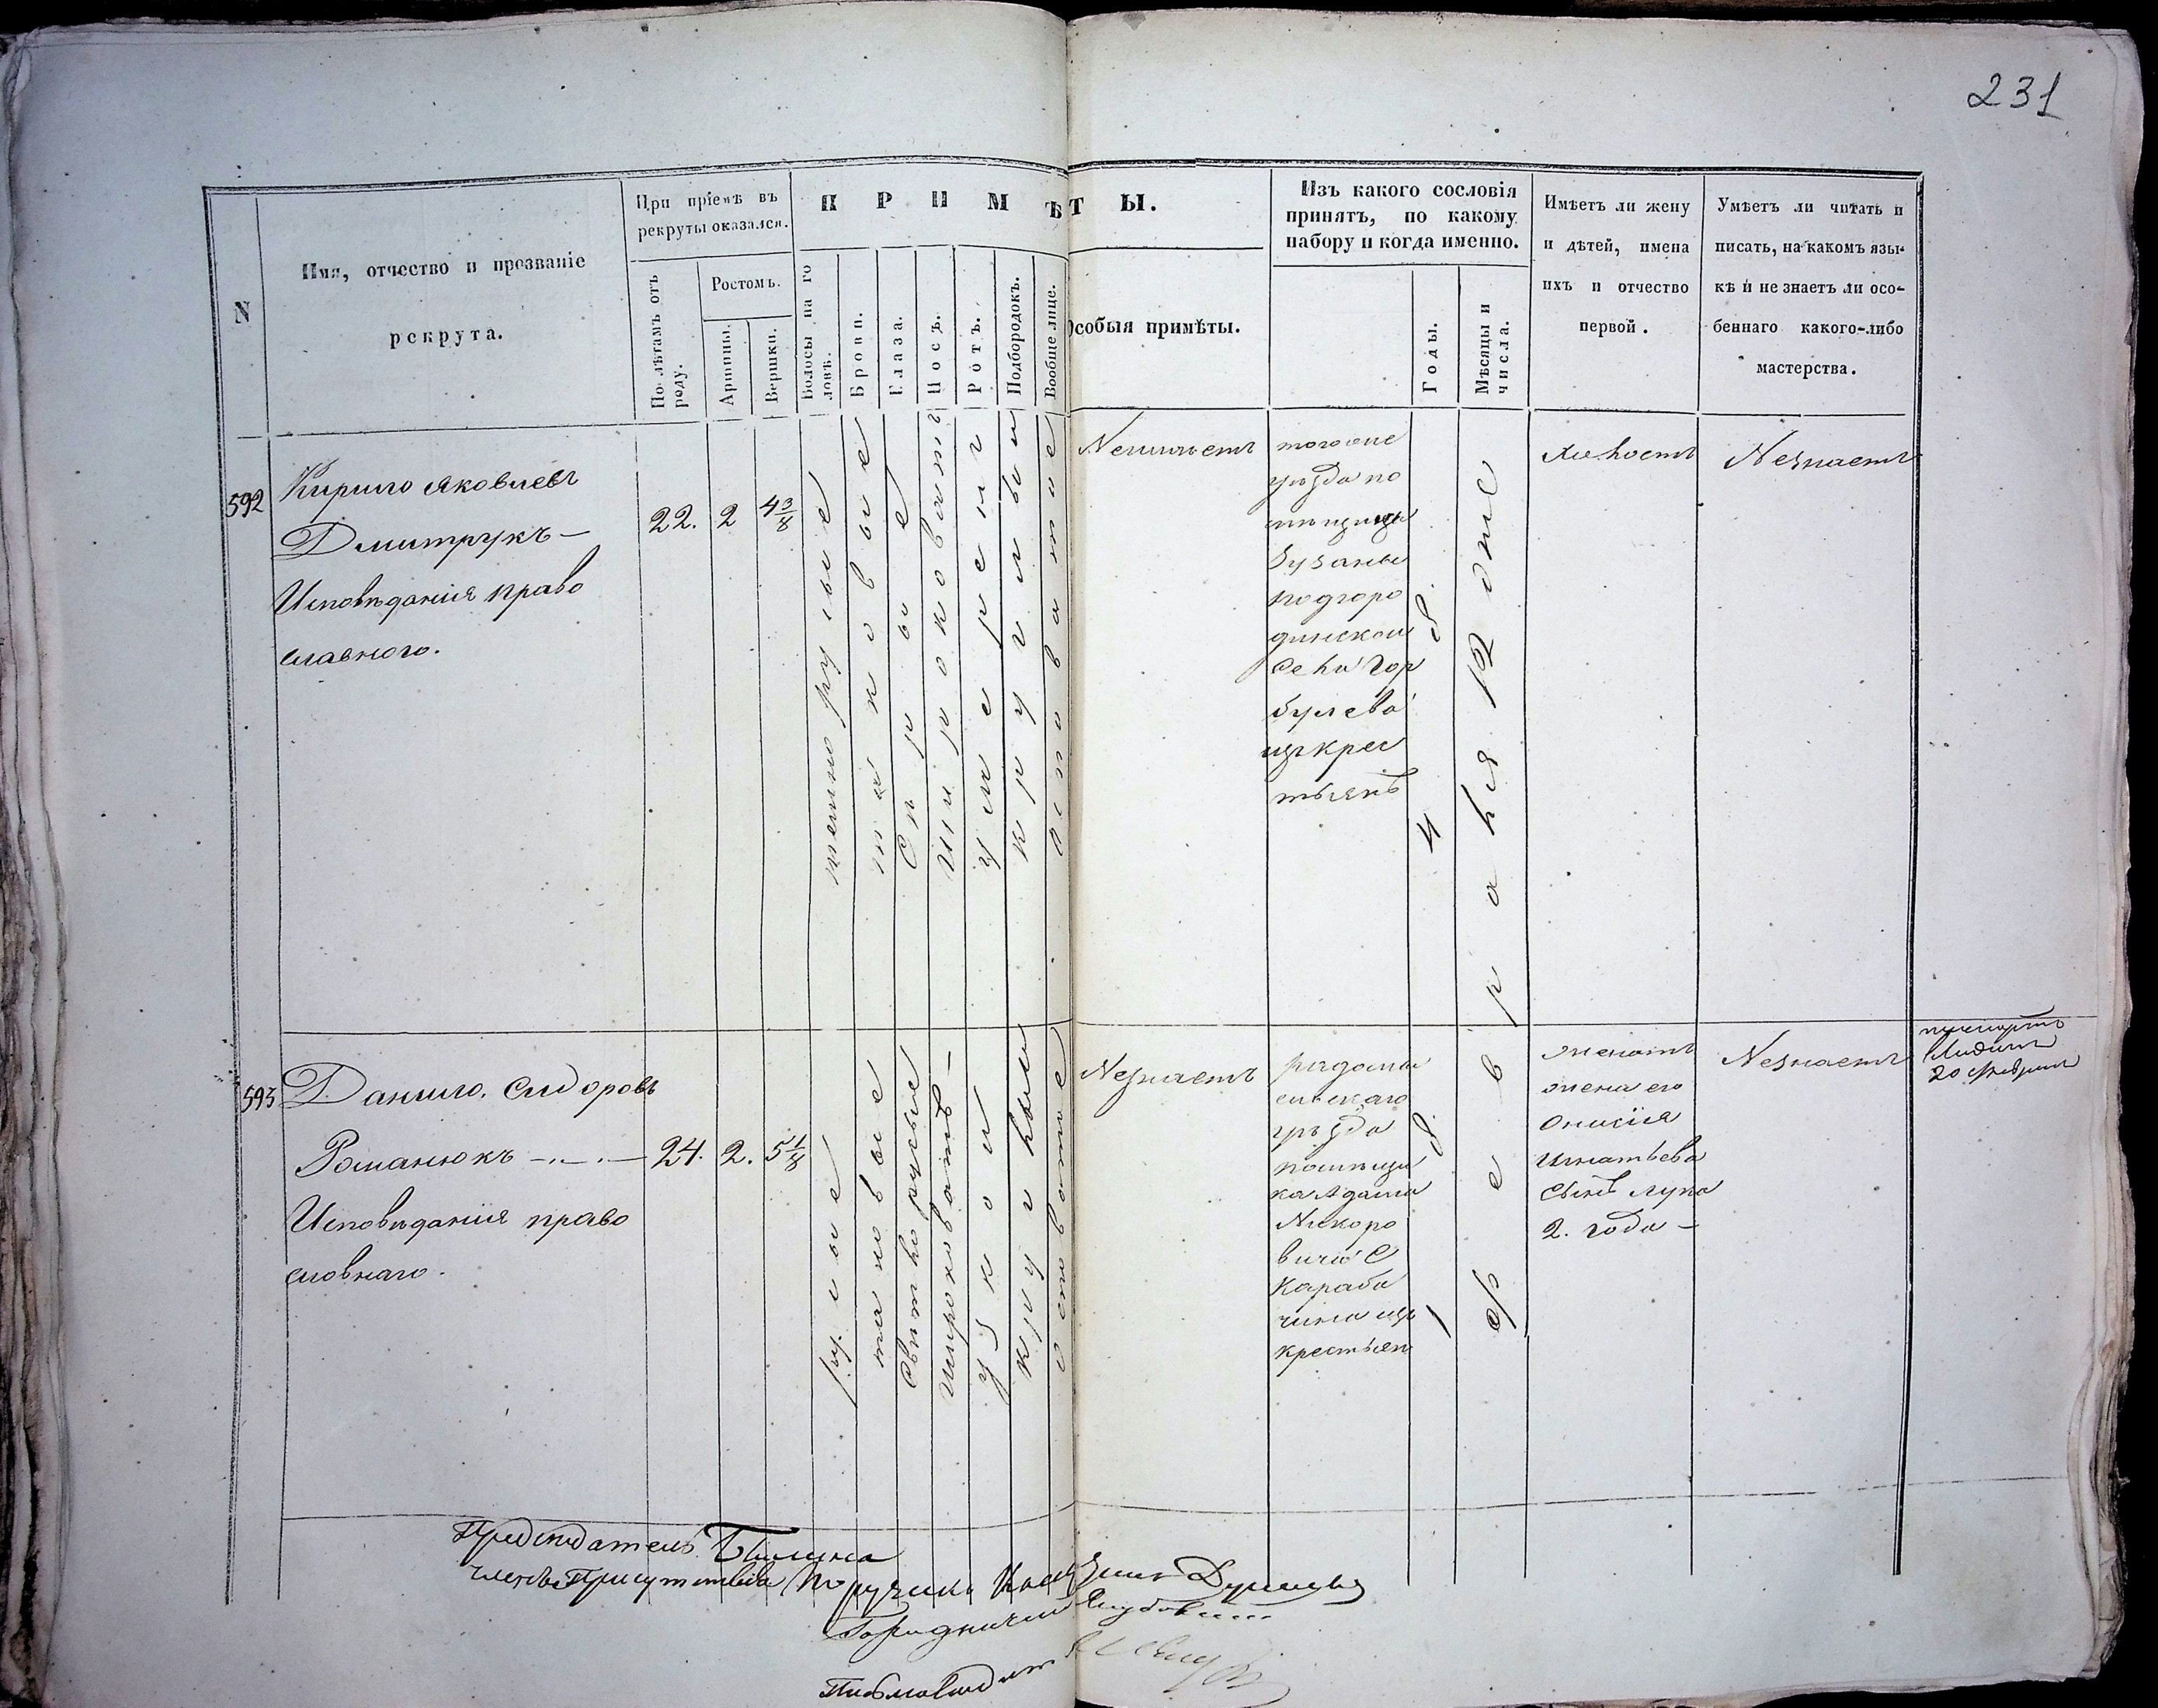 231
N
Имя, отчество и прозваніе
рекрута.
При пріемѣ въ
рекруты оказался.
По лѣтамъ отъ
роду.
Ростомъ.
Аршины.
Вершки.
ПРИМѢТЫ.
Волосы на го
ловѣ.
Брови.
Глаза.
Носъ.
Ротъ.
Подбородокъ.
Вообще лице.
Особыя примѣты.
Изъ какого сословія
принятъ, по какому
набору и когда именно.
Годы.
Мѣсяцы и
числа.
Имѣетъ ли жену
и дѣтей, имена
ихъ и отчество
первой.
Умѣетъ ли читать и
писать, на какомъ язы-
кѣ и не знаетъ ли осо-
беннаго какого-либо
мастерства.
592
Кирило Яковлевъ
Дмитрукъ —
Исповѣданія право
славного.
22.
2
4 3/8
темно русые
таковые
Сѣрые
Широковатъ
умерений
круглый
Не имѣетъ
того же
уѣзда по
мѣщицы
Зузанны
Подгоро
динскои
Села Гор
булева
изъ крес
тьянъ
февраля 12 дня
Холостъ
Незнаетъ
593
Данило Сидоровъ
Романюкъ —
Исповѣданія право
словнаго.
24.
2.
5 1/8
русые
таковые
Свѣтло русые
Широковатъ —
узкой
круглый
Незнаетъ
радомы
сльскаго
уѣзда
помѣщи
ка Адама
Никоро
вича С
Караба
чина изъ
крестьян
женатъ
жена его
Онисія
Игнатьева
Сынъ Лука
2. года —
Незнаетъ
20 февраля
Предсѣдатель
Члены Присутствія
Поручикъ
Городничий
Письмоводит